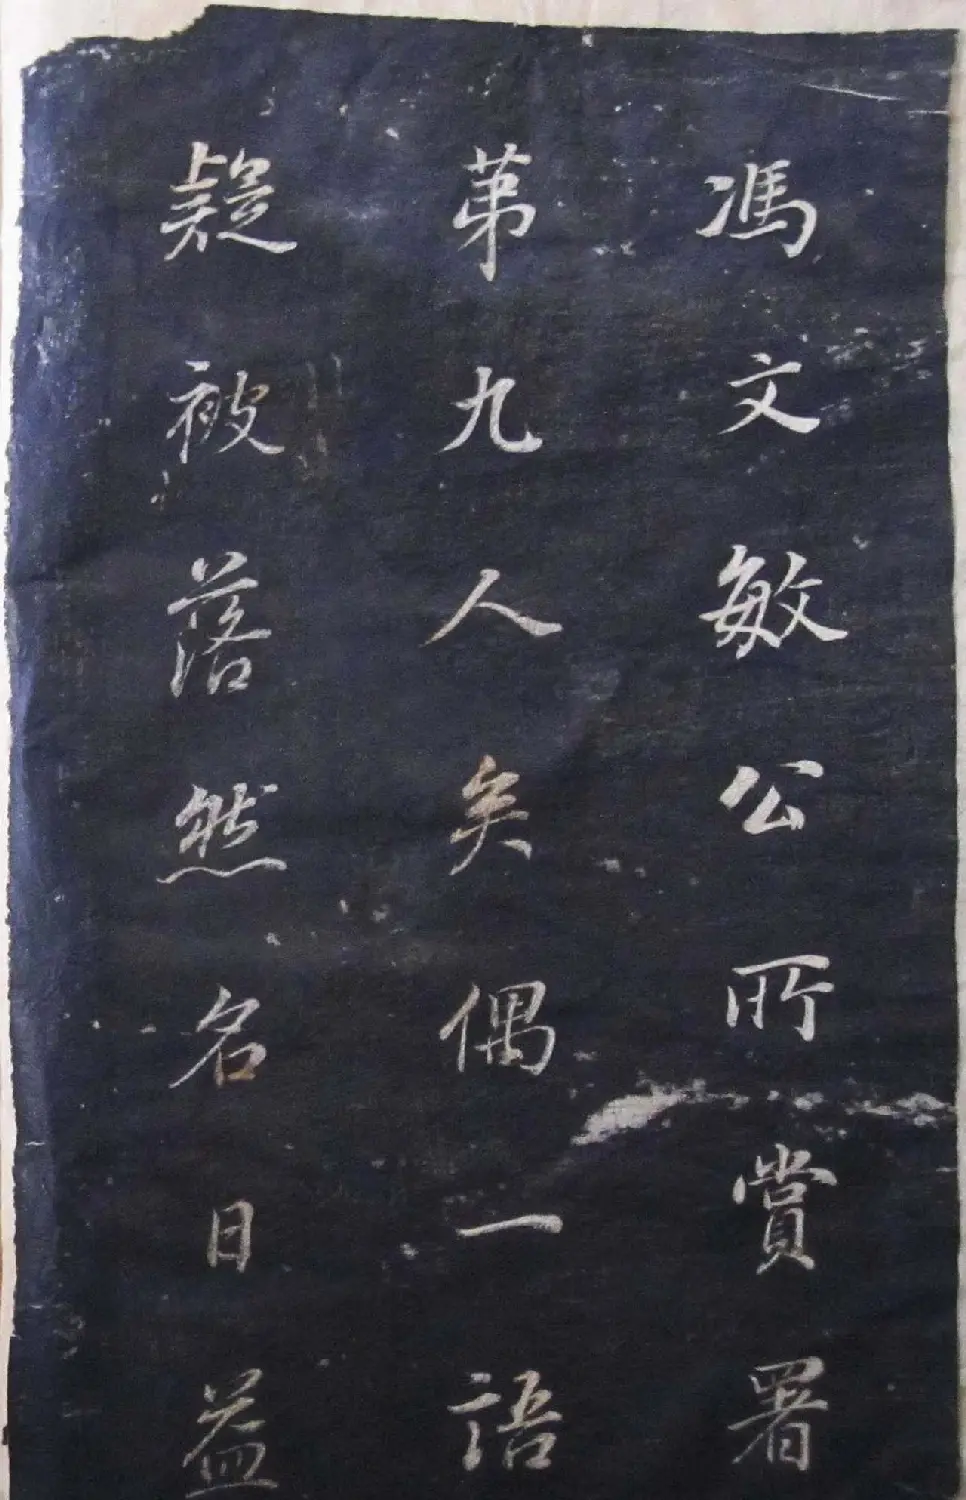 馮文敏公所賞署
第九人矣偶一語
疑被落然名日益